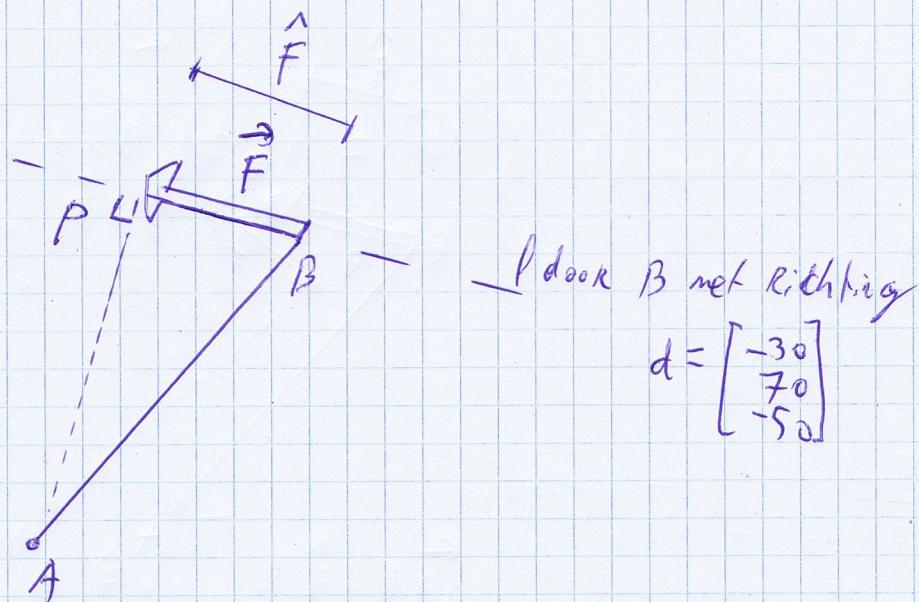 F̂
F⃗
P
B
l door B met Richting
d = [-30
70
-50]
A